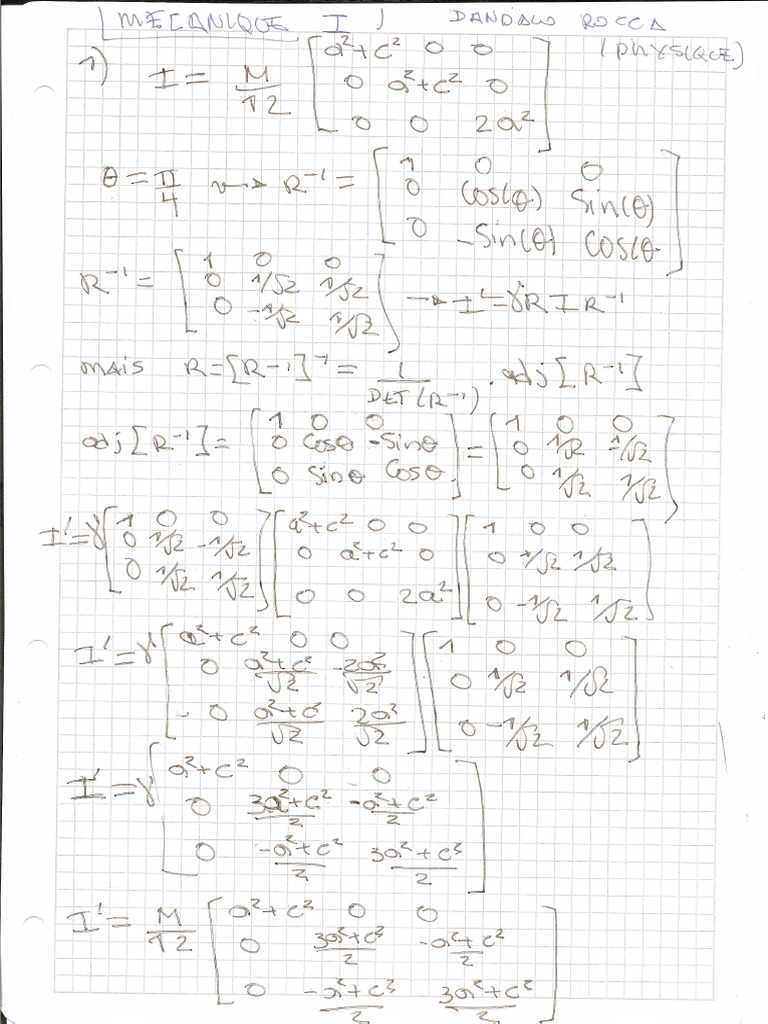 MECANIQUE I) DANDALO ROCCA
(PHYSIQUE)
1) I = M/12 [a²+c² 0 0
0 a²+c² 0
0 0 2a²]
θ = π/4 ⇝ R⁻¹ = [1 0 0
0 cos(θ) sin(θ)
0 -sin(θ) cos(θ]
R⁻¹ = [1 0 0
0 1/√2 1/√2
0 -1/√2 1/√2] → I' = γRIR⁻¹
mais R = [R-1]⁻¹ = 1/DET(R-1) . adj[R-1]
adj[R⁻¹] = [1 0 0
0 cosθ -sinθ
0 sinθ cosθ] = [1 0 0
0 1/√2 -1/√2
0 1/√2 1/√2]
I' = γ [1 0 0
0 1/√2 -1/√2
0 1/√2 1/√2] [a²+c² 0 0
0 a²+c² 0
0 0 2a²] [1 0 0
0 1/√2 1/√2
0 -1/√2 1/√2]
I' = γ [a²+c² 0 0
0 a²+c²/√2 -2a²/√2
0 a²+c²/√2 2a²/√2] [1 0 0
0 1/√2 1/√2
0 -1/√2 1/√2]
I' = γ [a²+c² 0 0
0 3a²+c²/2 -a²+c²/2
0 -a²+c²/2 3a²+c²/2]
I' = M/12 [a²+c² 0 0
0 3a²+c²/2 -a²+c²/2
0 -a²+c²/2 3a²+c²/2]